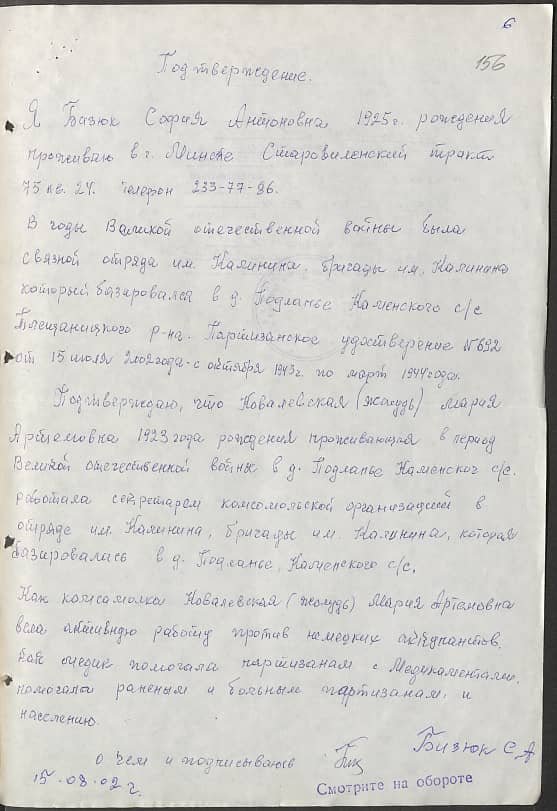 6
156
Подтверждение.
Я Бизюк София Антоновна 1925г. рождения
проживаю в г. Минске Старовиленский тракт
75 кв. 24. телефон 233-77-96.
В годы Великой отечественной войны была
связной отряда им. Калинина. бригады им. Калинина
который базировался в д. Подланье Каменского с/с
Плещаницкого р-на. Партизанское удостверение №692
от 15 июля 2002года - с октября 1943г. по март 1944года.
Подтверждаю, что Ковалевская (жолудь) Мария
Артемовна 1923 года рождения проживающая в период
Великой отечественной войны в д. Подланье Каменског с/с.
работала секретарем комсомольской организацией в
отряде им. Калинина, бригады им. Калинина, которая
базировалась в д. Подланье, Каменского с/с.
Как комсамолка Ковалевская (жолудь) Мария Артемовна
вела активную работу против немецких оккупантов.
как медик помогала партизанам с медикаментами.
помогала раненым и больным партизанам и
населению.
о чем и подписываюсь
Бизюк С А
15.08.02 г.
Смотрите на обороте